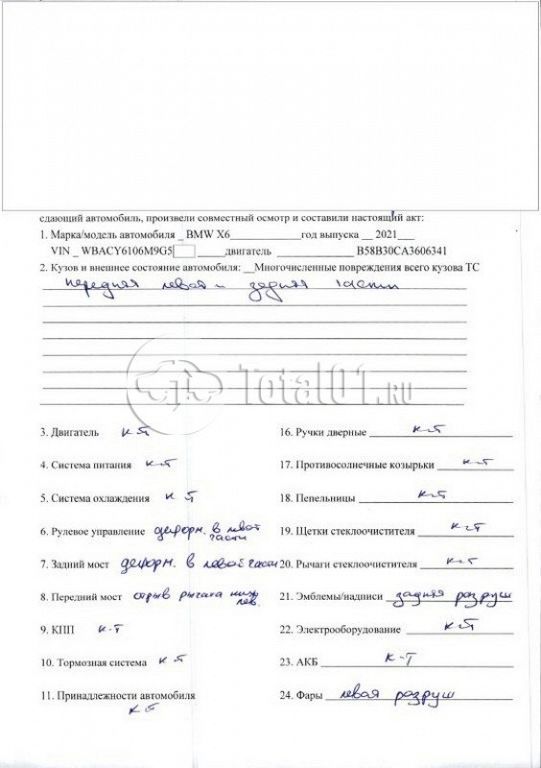 сдающий автомобиль, произвели совместный осмотр и составили настоящий акт:
1. Марка/модель автомобиля _ BMW X6____________год выпуска __ 2021___
VIN _ WBACY6106M9G5 _____двигатель ______________ B58B30CA3606341
2. Кузов и внешнее состояние автомобиля: __Многочисленные повреждения всего кузова ТС
передняя левая и задняя части
Total01.ru
3. Двигатель к-т
16. Ручки дверные к-т
4. Система питания к-т
17. Противосолнечные козырьки к-т
5. Система охлаждения к-т
18. Пепельницы к-т
6. Рулевое управление деформ. в левой части
19. Щетки стеклоочистителя к-т
7. Задний мост деформ. в левой части
20. Рычаги стеклоочистителя к-т
8. Передний мост отрыв рычага ниж. лев.
21. Эмблемы/надписи задняя разруш
9. КПП к-т
22. Электрооборудование к-т
10. Тормозная система к-т
23. АКБ к-т
11. Принадлежности автомобиля
к-т
24. Фары левая разруш